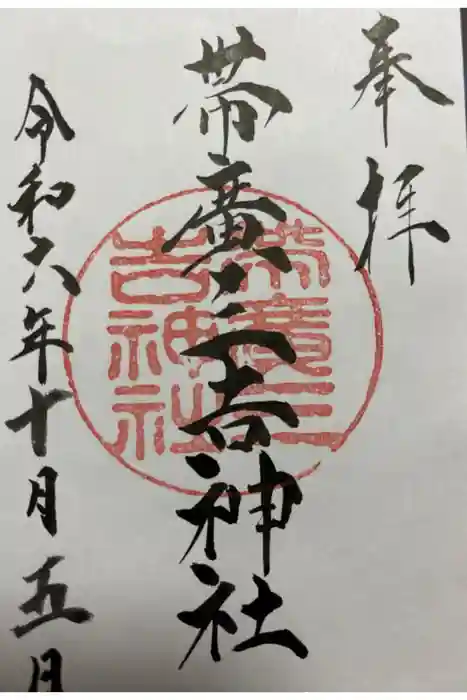 奉拝
帯廣三吉神社
帯廣三
吉神社
令和六年十月五日